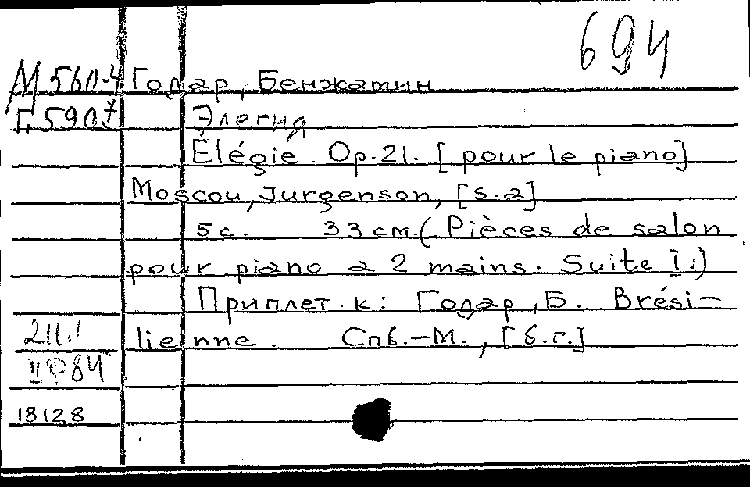 694
М 560-4 Годар, Бенжамин
Г. 590 Элегия
Élégie. Op.21. [pour le piano]
Moscou, Jurgenson, [s.a]
5 с. 33 см. (Pièces de salon
pour piano a 2 mains. Suite I.)
Приплет. к: Годар, Б. Brési-
211.1 lienne. Спб.-М., [б.г.]
84
18128